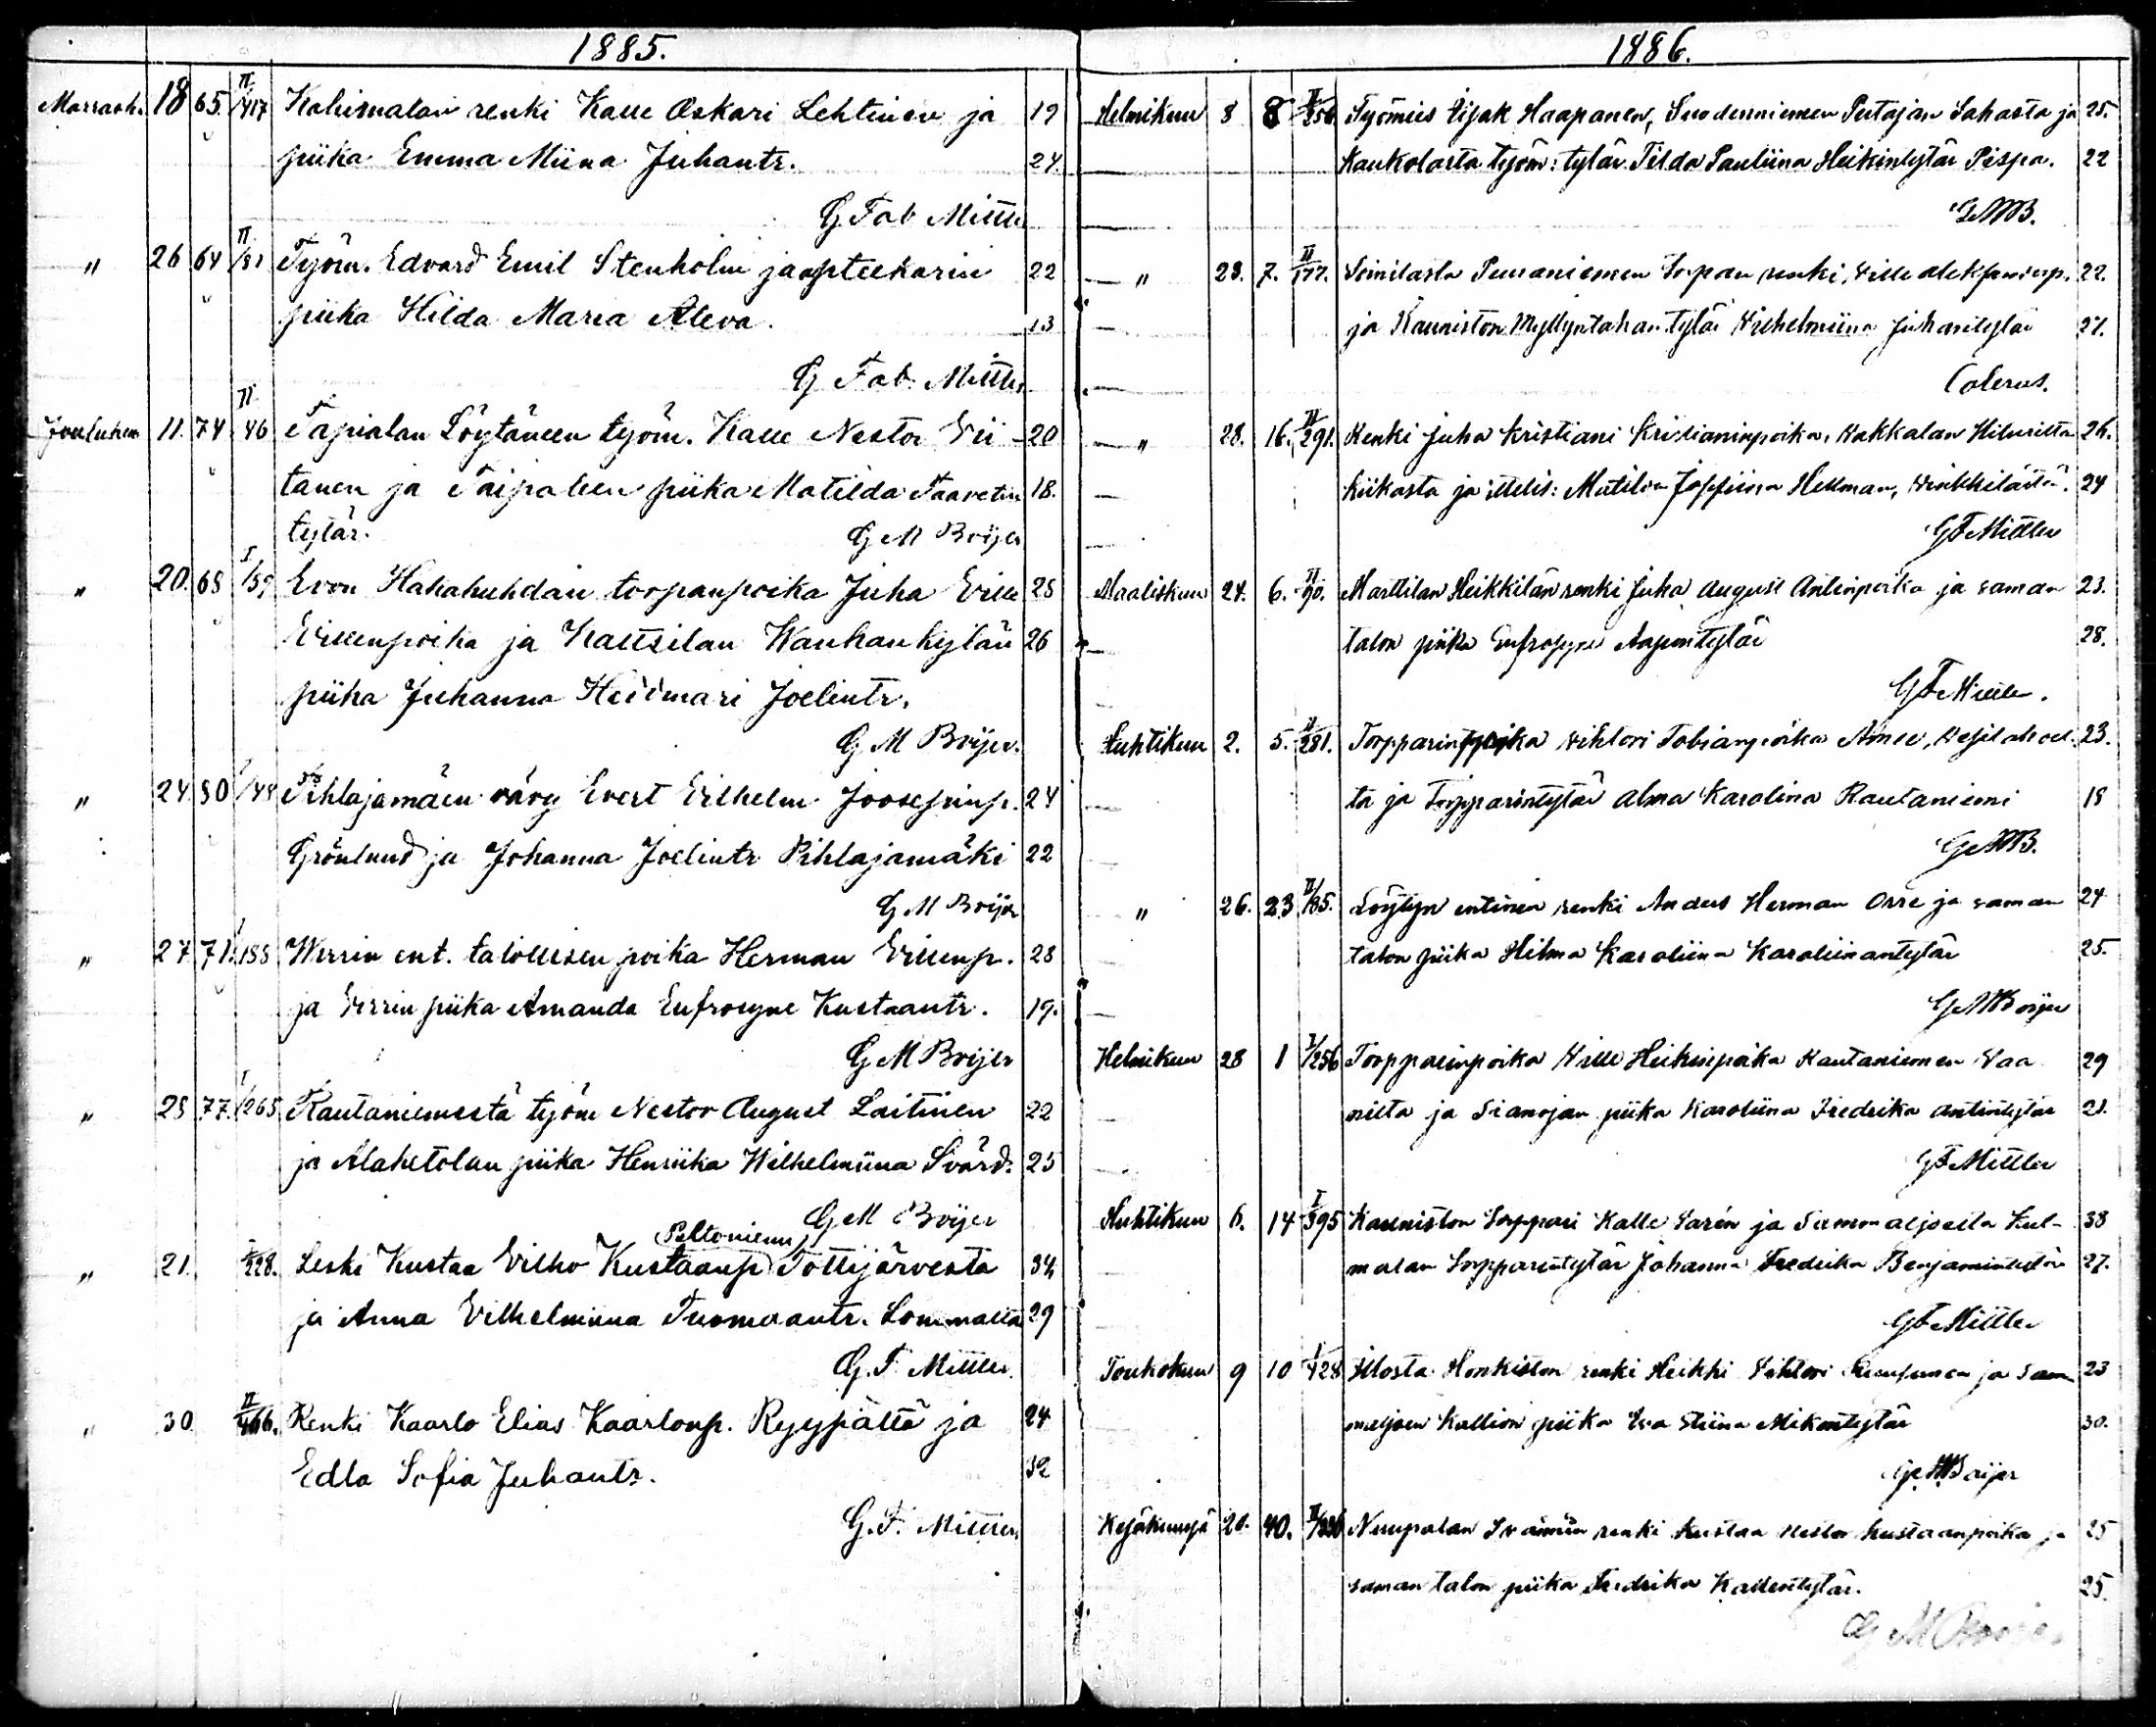 1885.
Marrask. 18 65. II/417 Kahimalan renki Kalle Oskari Lehtinen ja 19
piika Emma Miina Juhantr. 24.
G. Fab Mittler
" 26 64 II/81 Työm. Edvard Emil Stenholm ja apteekarin 22
piika Hilda Maria Aleva. 23
G Fab Mittler
Joulukun 11. 74 II/46 Tapialan Löytäneen työm. Kalle Nestor Vii- 20
tanen ja Taipaleen piika Matilda Taavetin 18.
tytär. G M Boijer
" 20. 68 I/59 Evon Hakahuhdan torpanpoika Juha Ville 28
Villenpoika ja Kaltsilan Wanhankylän 26
piika Juhanna Heidmari Joelintr.
G M Boijer.
" 24 80 I/44 Pihlajamäen vävy Evert Vilhelm Joosepinp. 24
Grönlund ja Johanna Joelintr Pihlajamäki 22
G M Boijer
" 27 71. I/188 Wirrin ent. talollisen poika Herman Villenp. 28
ja Virrin piika Amanda Eufrosyne Kustaantr. 19.
G M Boijer
" 28 77. I/265 Rautaniemestä työm Nestor August Laitinen 22
ja Alaketolan piika Henriika Wilhelmiina Svärd. 25
G M Boijer
Peltoniemi
" 21. I/228. Leski Kustaa Vilho Kustaanp Tottijärvestä 34
ja Anna Vilhelmiina Tuomaantr. Lommalta 29
G. F. Mittler.
" 30 II/466. Renki Kaarlo Elias Kaarlonp. Ryypältä ja 24
Edla Sofia Juhantr. 32
G. F. Mittler
1886.
Helmikuu 8 8 II/256 Työmies Iisak Haapanen, Suodenniemen Putajan Sahasta ja 25.
Kaukolasta työm: tytär Tilda Pauliina Heikintytär Pispa. 22
GMB.
" 28. 7. II/177. Ville Aleksanterip. 22.
ja Kauniston Myllyntakan tytär Vilhelmiina Juhantytär 27.
Colerus.
" 28. 16. II/291. Renki Juha Kristiani Kristianinpoika, 26.
Kiikasta ja ittelis: Matilda Joppiina Hellman, 24
GF Mittler
Maaliskuu 24. 6. II/90. Marttilan Heikkilän renki Juha August Antinpoika ja saman 23.
talon piika Eufrosyne Aapontytär 28.
GF Mittler.
Huhtikuu 2. 5. II/281. Torpparinpoika Vihtori Tobianpoika 23.
ta ja Torpparintytär Alma Karolina Rautaniemi 18
GMB.
" 26. 23 II/185. Löytyn entinen renki Anders Herman Orre ja saman 24
talon piika Hilma Karoliina Karoliinantytär 25.
GM Boijer
Helmikuu 28 1 I/256 Torpparinpoika Ville Heikinpoika Rautaniemen Vaa 29
nilta ja Sianojan piika Karoliina Fredrika Antintytär 21.
GF Mittler
Huhtikuu 6. 14 I/395 Kauniston Torppari Kalle Sarén ja Sammaljoelta Kul- 38
malan Torpparintytär Johanna Fredrika Benjamintytär 27.
GF Mittler
Toukokuu 9 10 I/428 Illosta Honkiston renki Heikki Vihtori ja Sam 23
maljoen Kallion piika Eva Stiina Mikontytär 30.
GM Boijer
Kesäkuussa 20. 40. Nuupalan renki Kustaa Nestor Kustaanpoika ja 25
saman talon piika Fredrika Kallentytär. 25.
G M Boijer